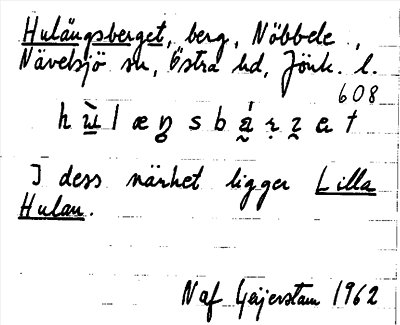 Hulängsberget, berg, Nöbbele,
Nävelsjö sn, Östra hd, Jönk. l.
608
I dess närhet ligger Lilla
Hulan.
Naf Geijerstam 1962